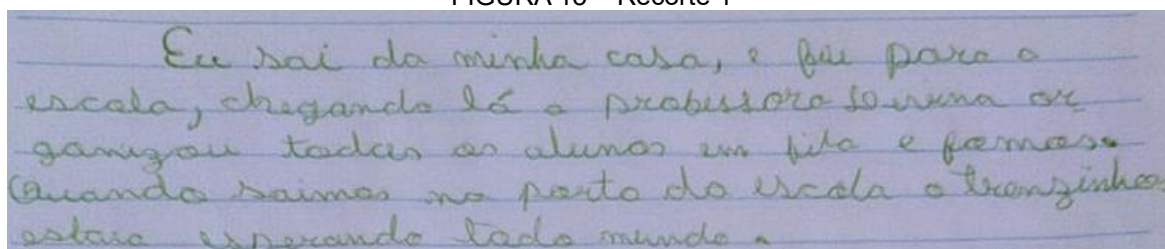 Eu sai da minha casa, e fui para a
escola, chegando lá a professora or
ganizou todos os alunos em fila e fomos.
Quando saimos na porta da escola o trenzinho
estava esperando todo mundo.